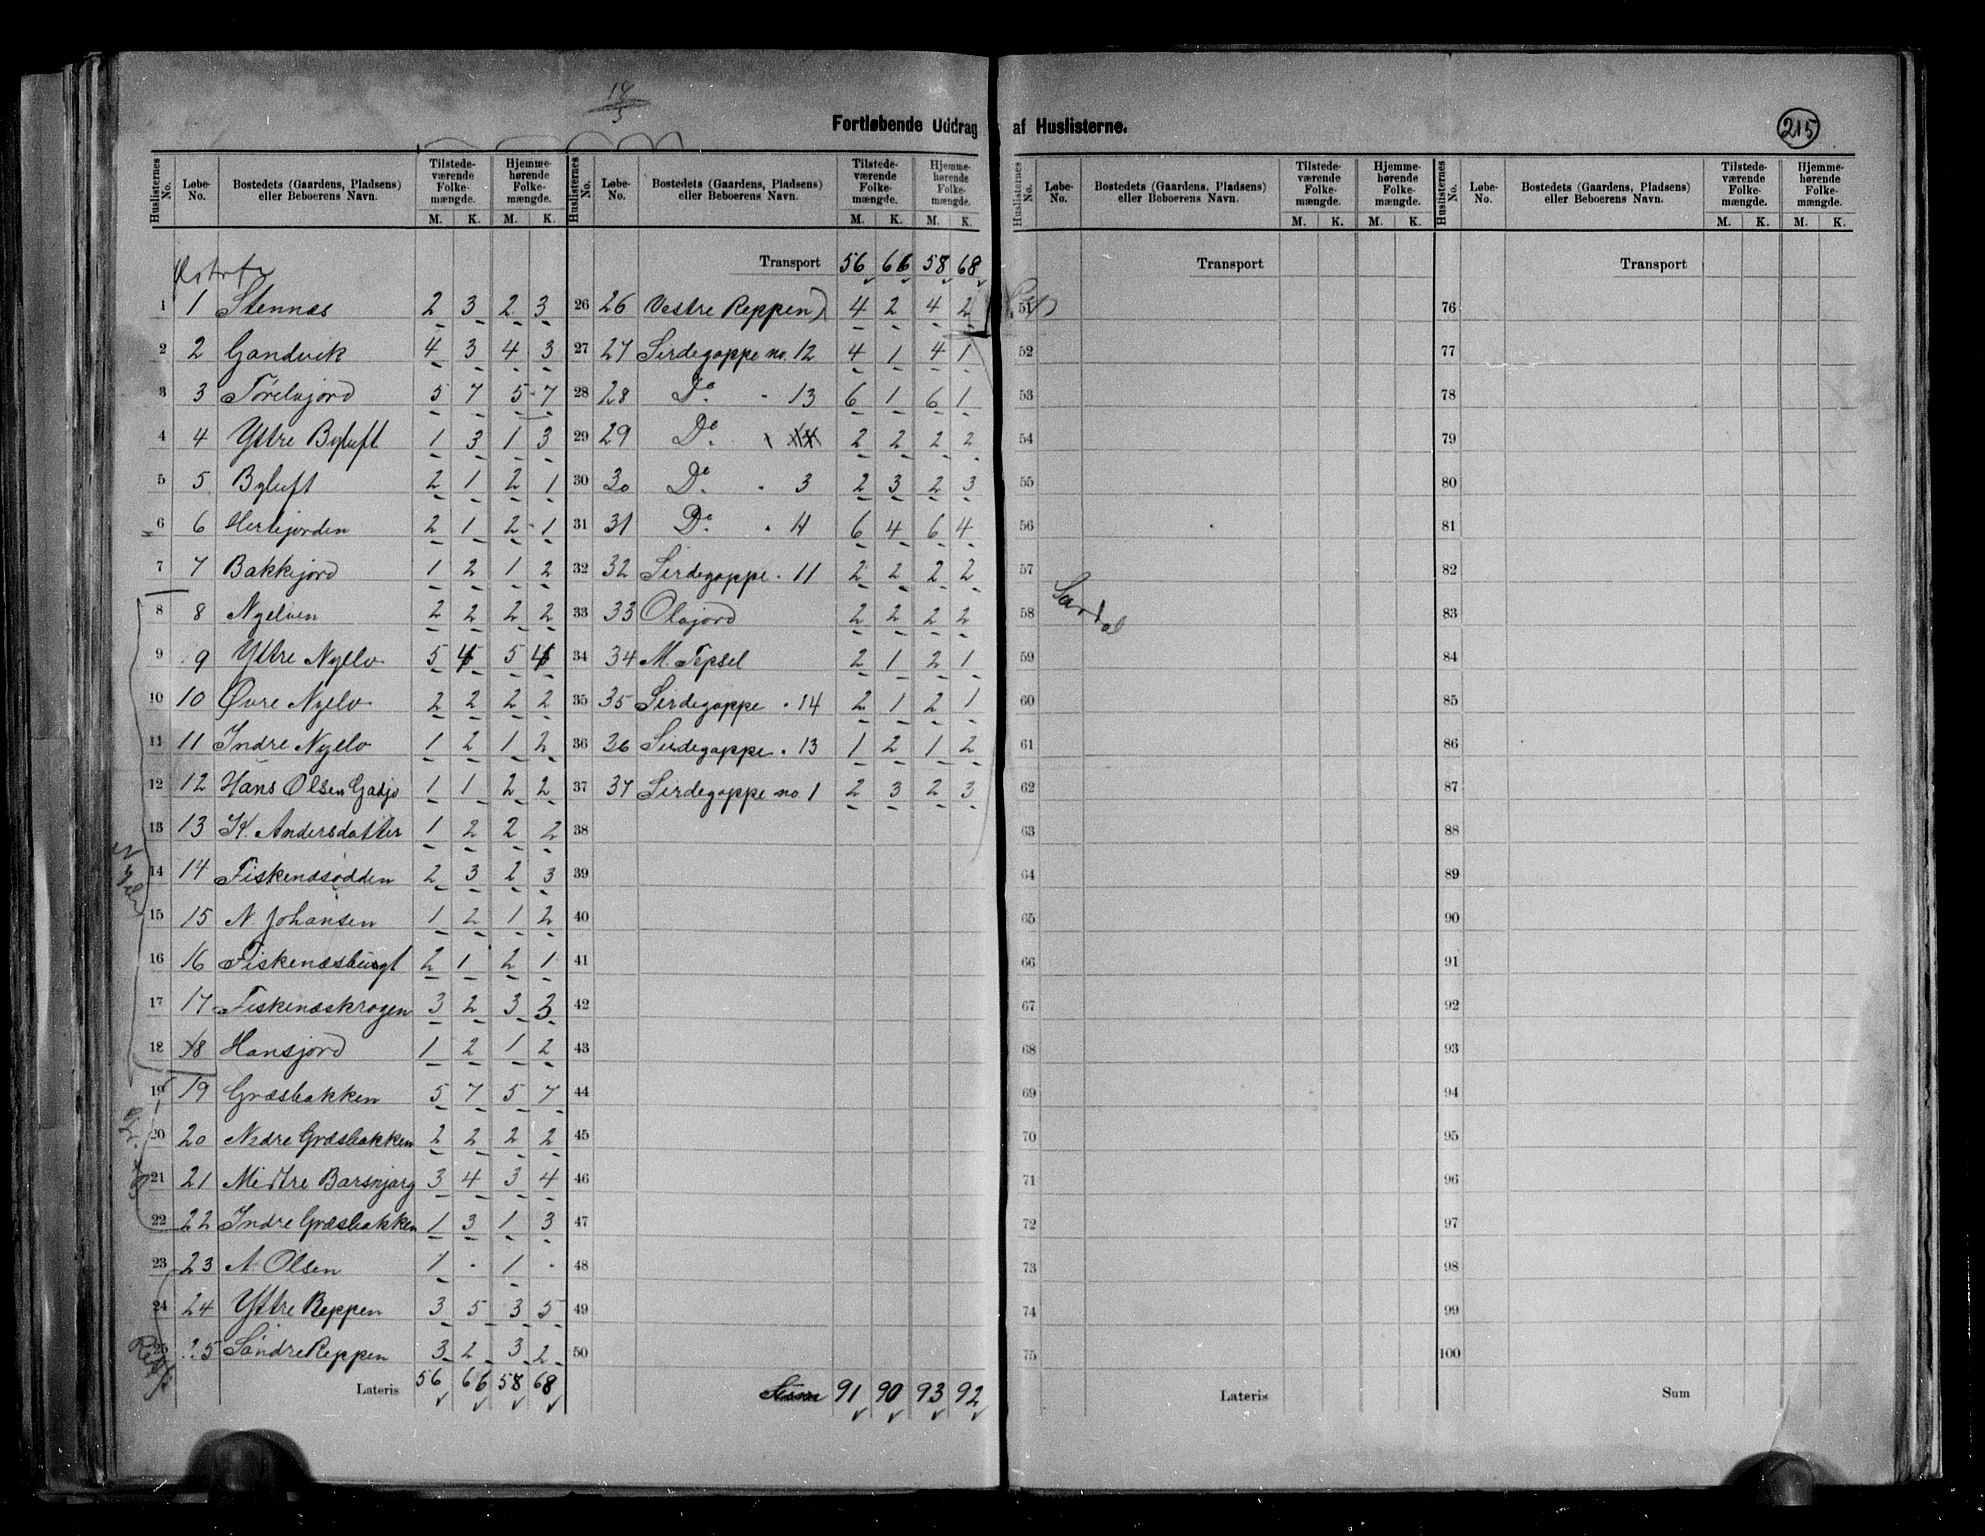 18/3
Fortløbende Uddrag af Huslisterne.
215
Huslisternes No. Løbe-No. Bostedets (Gaardens, Pladsens) eller Beboerens Navn. Tilstedeværende Folkemængde. M. K. Hjemmehørende Folkemængde. M. K.
1 1 Stennæs 2 3 2 3
2 2 Gandvik 4 3 4 3
3 3 5 7 5 7
4 4 Yttre Byluft 1 3 1 3
5 5 Byluft 2 1 2 1
6 6 2 1 2 1
7 7 Bakkejord 1 2 1 2
8 8 Nyelven 2 2 2 2
9 9 Yttre Nyelv 5 5
10 10 Øvre Nyelv 2 2 2 2
11 11 Indre Nyelv 1 2 1 2
12 12 Hans Olsen Gadjo 1 1 2 2
13 13 K. Andersdatter 1 2 2 2
14 14 Fiskenæsodden 2 3 2 3
15 15 N. Johansen 1 2 1 2
16 16 Fiskenæsbugt 2 1 2 1
17 17 Fiskenæskrogen 3 2 3
18 18 Hansjord 1 2 1 2
19 19 Græsbakken 5 7 5 7
20 20 Nedre Græsbakken 2 2 2 2
21 21 Midtre Barsnjarg 3 4 3 4
22 22 Indre Græsbakken 1 3 1 3
23 23 A. Olsen 1 . 1 .
24 24 Yttre Reppen 3 5 3 5
25 Søndre Reppen 3 2 3 2
Lateris 56 66 58 68
Nyelv
Huslisternes No. Løbe-No. Bostedets (Gaardens, Pladsens) eller Beboerens Navn. Tilstedeværende Folkemængde. M. K. Hjemmehørende Folkemængde. M. K.
Transport 56 66 58 68
26 26 Vestre Reppen 4 2 4 2
27 27 Sirdegoppe no. 12 4 1 4 1
28 28 Do. " 13 6 1 6 1
29 29 Do. 2 2 2 2
30 30 Do. " 3 2 3 2 3
31 31 Do. " 4 6 4 6 4
32 32 Sirdegoppe " 11 2 2 2 2
33 33 Olajord 2 2 2 2
34 34 M. Tepsel 2 1 2 1
35 35 Sirdegoppe " 14 2 1 2 1
36 36 Sirdegoppe " 13 1 2 1 2
37 37 Sirdegoppe no. 1 2 3 2 3
38
39
40
41
42
43
44
45
46
47
48
49
50
Sum 91 90 93 92
Huslisternes No. Løbe-No. Bostedets (Gaardens, Pladsens) eller Beboerens Navn. Tilstedeværende Folkemængde. M. K. Hjemmehørende Folkemængde. M. K.
Transport
51
52
53
54
55
56
57
58
59
60
61
62
63
64
65
66
67
68
69
70
71
72
73
74
75
Lateris
Huslisternes No. Løbe-No. Bostedets (Gaardens, Pladsens) eller Beboerens Navn. Tilstedeværende Folkemængde. M. K. Hjemmehørende Folkemængde. M. K.
Transport
76
77
78
79
80
81
82
83
84
85
86
87
88
89
90
91
92
93
94
95
96
97
98
99
100
Sum